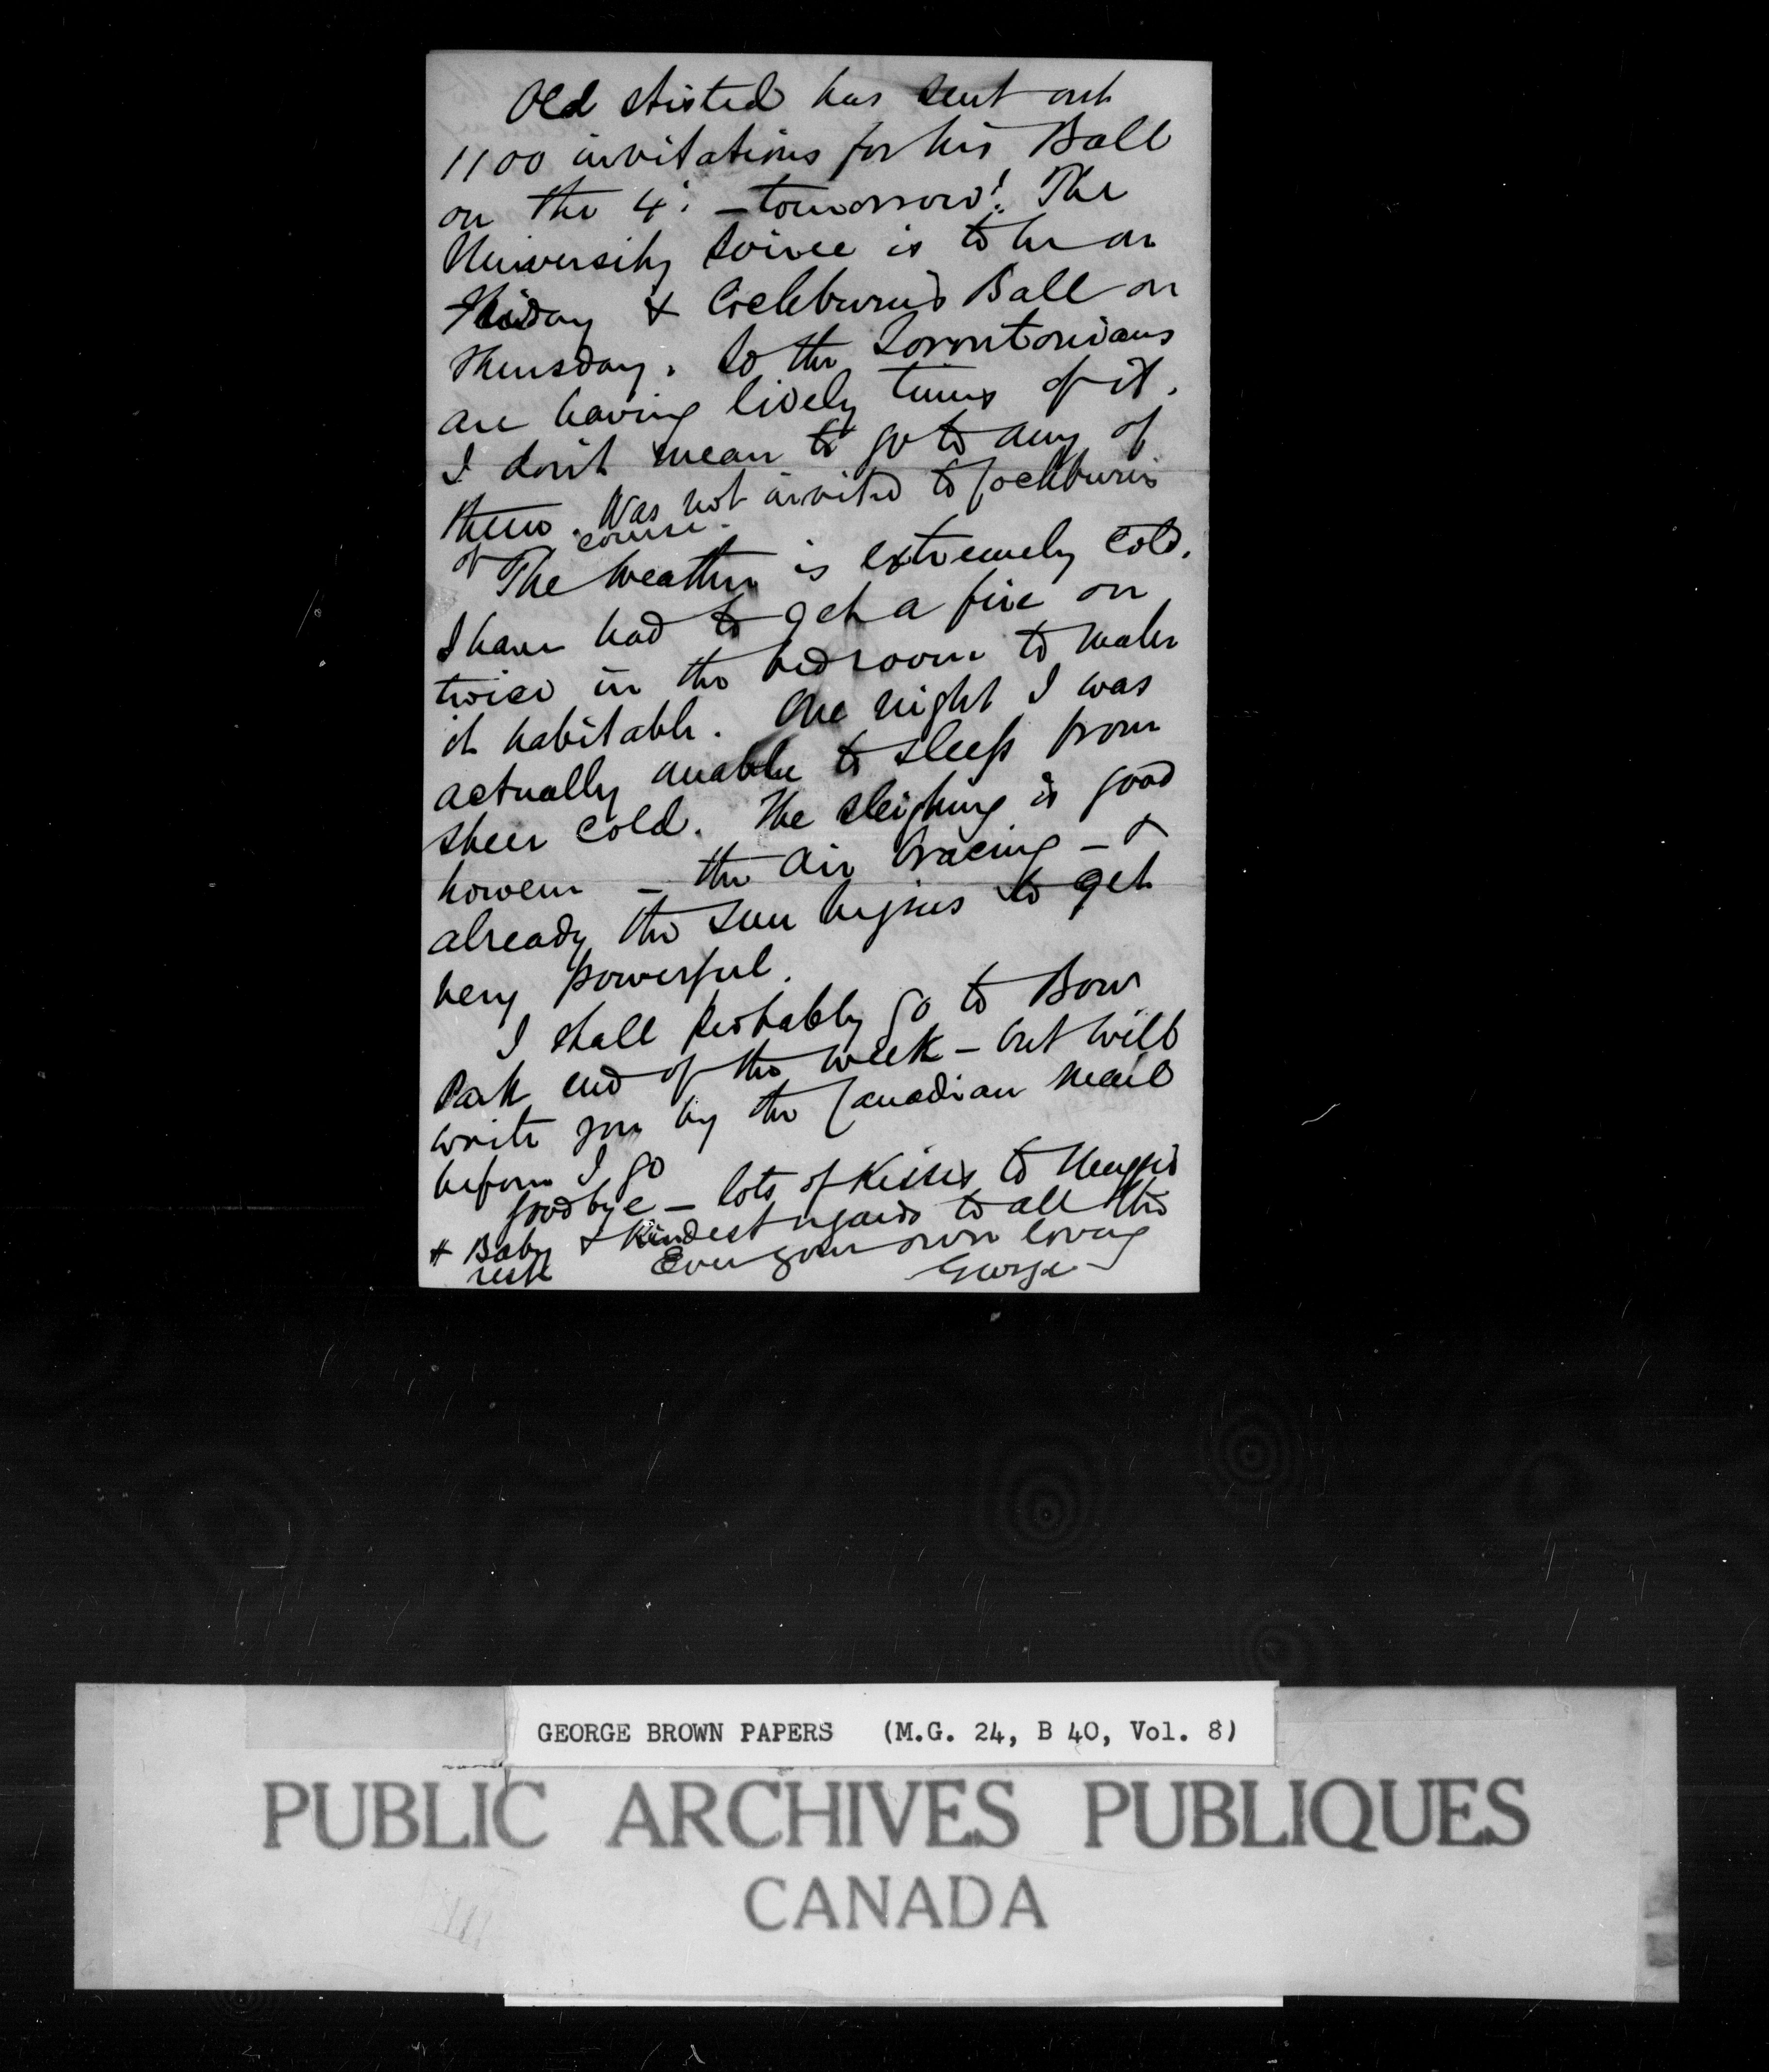 Old Stisted has sent out
1100 invitations for his Ball
on the 4. – tomorrow! The
University Soiree is to be on
Friday & Cockburn's Ball on
Thursday. So the Torontonians
are having lively times of it.
I don't mean to go to any of
them. Was not invited to Cockburn's
of course.
The weather is extremely cold.
I have had to get a fire on
twice in the bedroom to make
it habitable. One night I was
actually unable to sleep from
sheer cold. The sleighing is good
however – the air bracing – &
already the sun begins to get
very powerful.
I shall probably go to Bow
Park end of the week – but will
write you by the Canadian Mail
before I go
Goodbye – lots of kisses to Maggie
& Baby & kindest regards to all the
rest Ever your own loving
George
GEORGE BROWN PAPERS (M.G. 24, B 40, Vol. 8)
PUBLIC ARCHIVES PUBLIQUES
CANADA